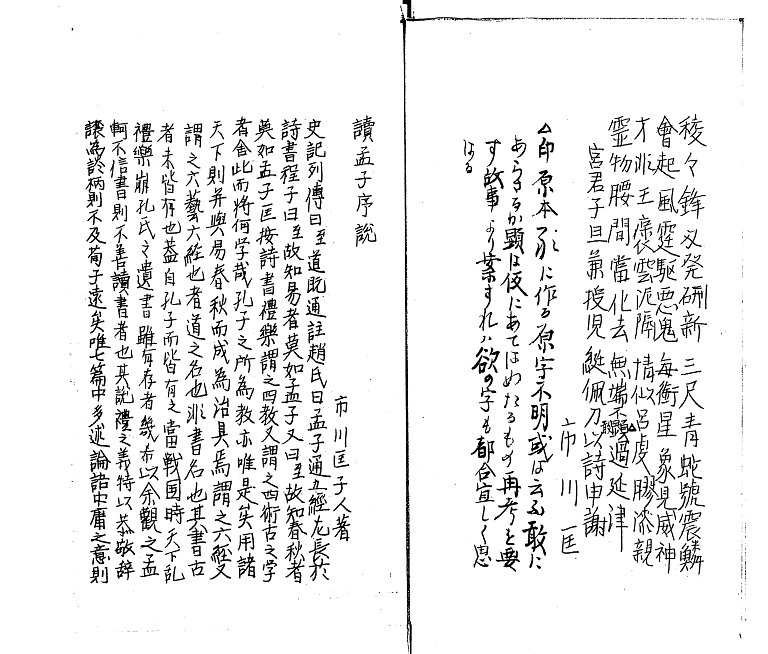 稜々鋒刄発研新 三尺青蛇號震鱗
會起風霆駆悪鬼 毎衝星象見威神
才非王褒雲泥隔 情似呂虔膠漆親
霊物腰間當化去 無端不過延津
宮君子旦兼授児 綎佩刀以詩申謝
市川匡
△印原本 に作る原字不明或は云ふ敢に
あらさるか顕は仮にあてはめたるもの再考を要
す故事より案すれハ欲の字も都合宜しく思
はる
讀孟子序説
市川匡子人著
史記列傳曰至道既通註趙氏曰孟子通五經尤長於
詩書程子曰至故知易者莫如孟子又曰至故知春秋者
莫如孟子匡按詩書禮樂謂之四教又謂之四術古之学
者舎此而将何学哉孔子之所為教亦唯是矣用諸
天下則并與易春秋而成為治具焉謂之六經又
謂之六藝六經也者道之名也非書名也其書古
者未皆存也蓋自孔子而皆有之當戦国時天下乱
禮樂崩孔氏之遺書雖有存者幾希以余觀之孟
軻不信書則不善讀書者也其説禮之義特以恭敬辞
譲為於柄則不及荀子遠矣唯七篇中多述論語中庸之意則